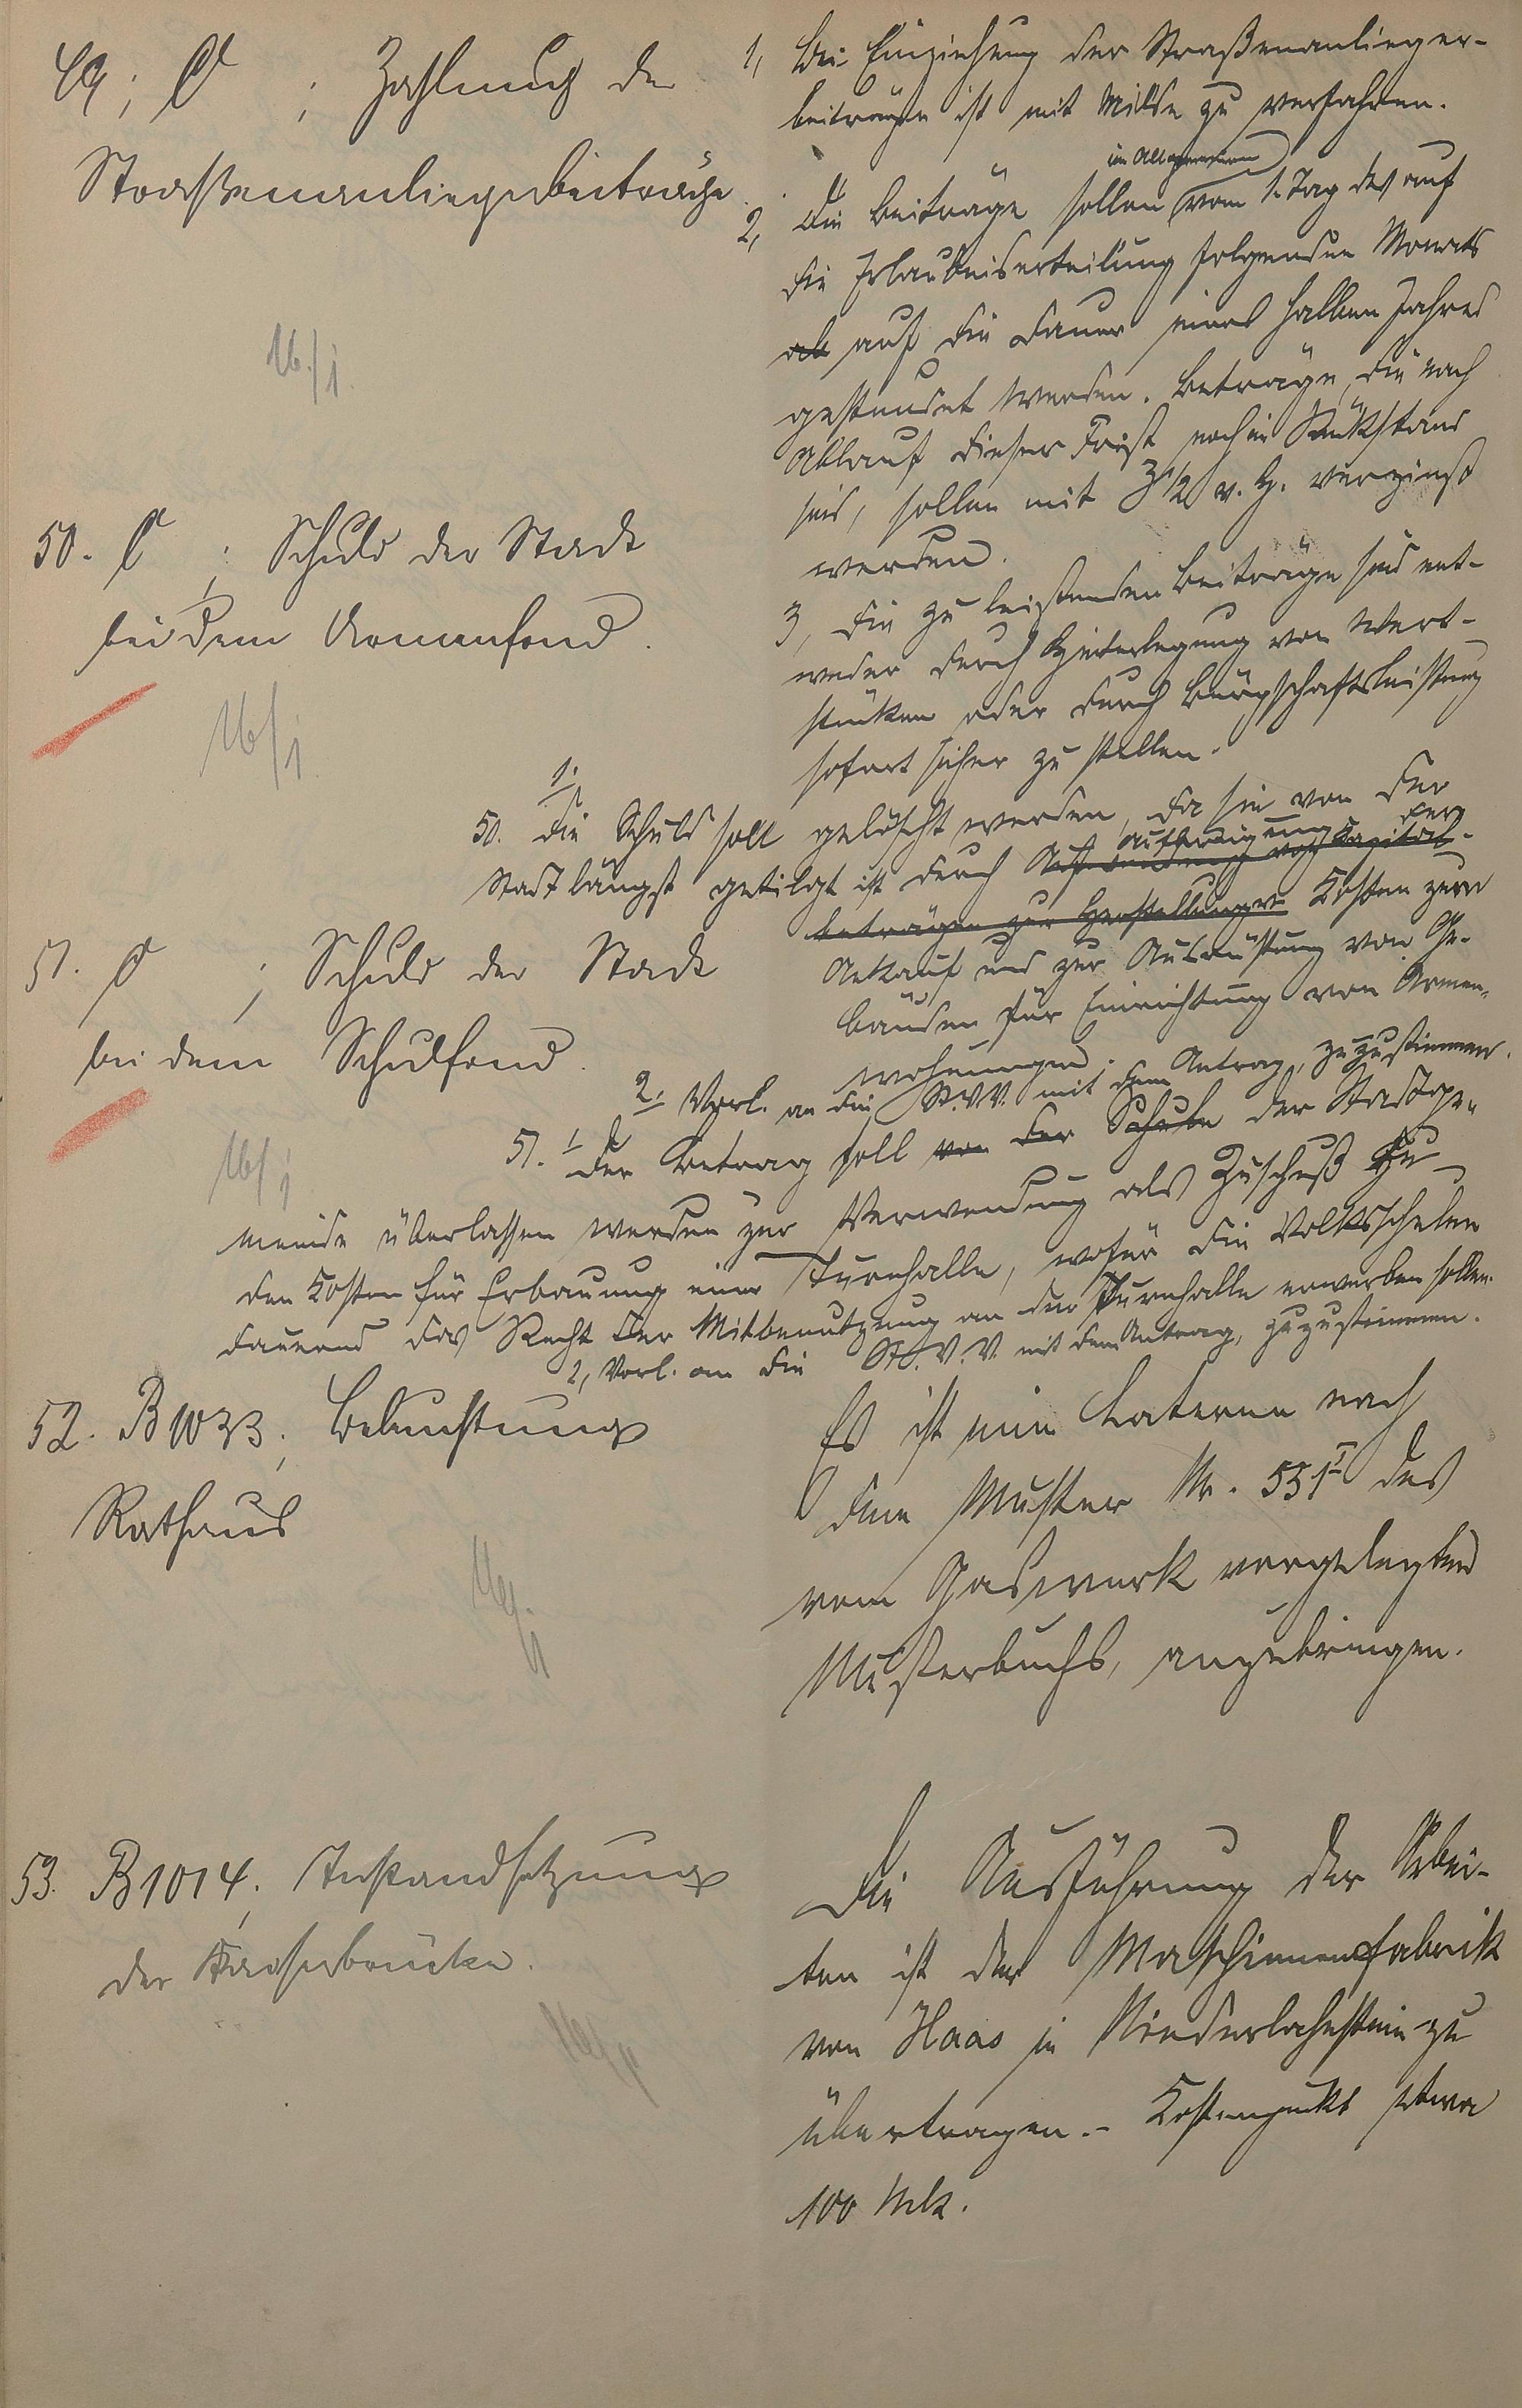 49; C ; Zahlung der
Straßenanliegerbeiträge.
16./1.
1, Bei Einziehung der Straßenanlieger-
beiträge ist mit Milde zu verfahren.
2, Die Beiträge sollen im Allgemeinen vom 1. Tag des auf
die Erlaubniserteilung folgenden Monats
ab auf die Dauer eines halben Jahres
gestundet werden. Beträge, die nach
Ablauf dieser Frist noch in Rückstand
sind, sollen mit 3 1/2 v. H. verzinst
werden.
3, Die zu leistenden Beiträge sind ent-
weder durch Hinterlegung von Wert-
stücken oder durch Bürgschaftsleistung
sofort sicher zu stellen.
50. C ; Schuld der Stadt
bei dem Armenfond.
16/1.
50. 1. Die Schuld soll gelöscht werden, da sie von der
Stadt längst getilgt ist durch Aufwendung von Kapital-
Aufbringung der
beträgen zur Herstellung von Kosten zum
Ankauf und zur Ausrüstung von Ge-
bäuden für Einrichtung von Armen-
wohnungen.
2. Vorl. an die St.V.V. mit dem Antrag, zuzustimmen.
51. C ; Schuld der Stadt
bei dem Schulfond.
16/1
51. 1 Der Betrag soll von der Schule der Stadtge-
meinde überlassen werden zur Verwendung als Zuschuß zu
den Kosten für Erbauung einer Turnhalle, wofür die Volksschulen
dauernd das Recht der Mitbenutzung an der Turnhalle erwerben sollen.
2, Vorl. an die St.V.V. mit dem Antrag, zuzustimmen.
52. B 1033; Beleuchtung
Rathaus
Es ist eine Laterne nach
dem Muster Nr. 551 I des
vom Gaswerk vorgelegten
Musterbuchs, anzubringen.
53. B 1014; Instandsetzung
der Kaiserbrücke.
Die Ausführung der Arbei-
ten ist der Maschinenfabrik
von Haas in Niederlahnstein zu
übertragen. - Kostenpunkt etwa
100 Mk.